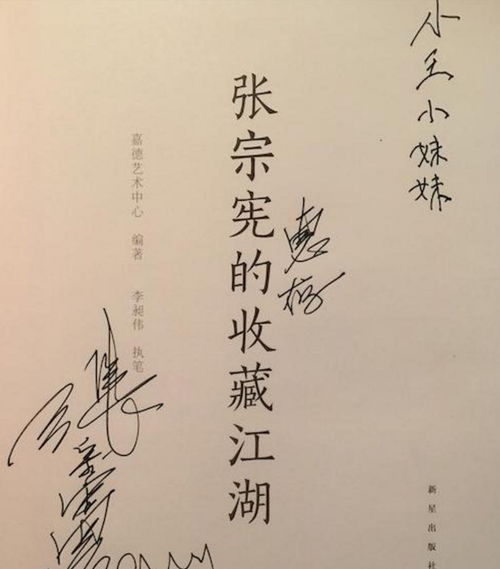 小王小妹妹
惠存
张宗宪的收藏江湖
嘉德艺术中心 编著 李昶伟 执笔
张宗宪
新星出版社